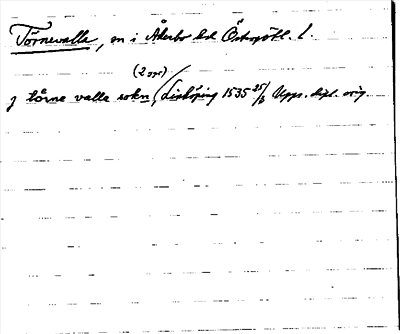 Törnevalla, sn i Åkerbo hd Östergötl. l.
(2 ggr)
j törne valla sokn (Linköping 1535 25/3 Upps. dipl. orig.